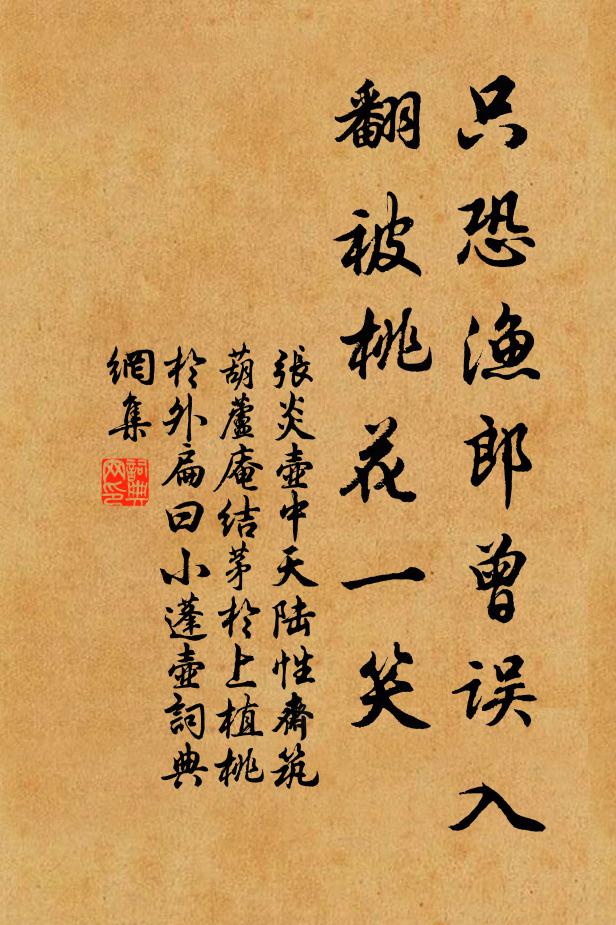 只恐漁郎曾误入
翻被桃花一笑
張炎壺中天陸性齋筑
葫蘆庵结茅於上植桃
於外扁曰小蓬壺詞典
網集
詞典
网印